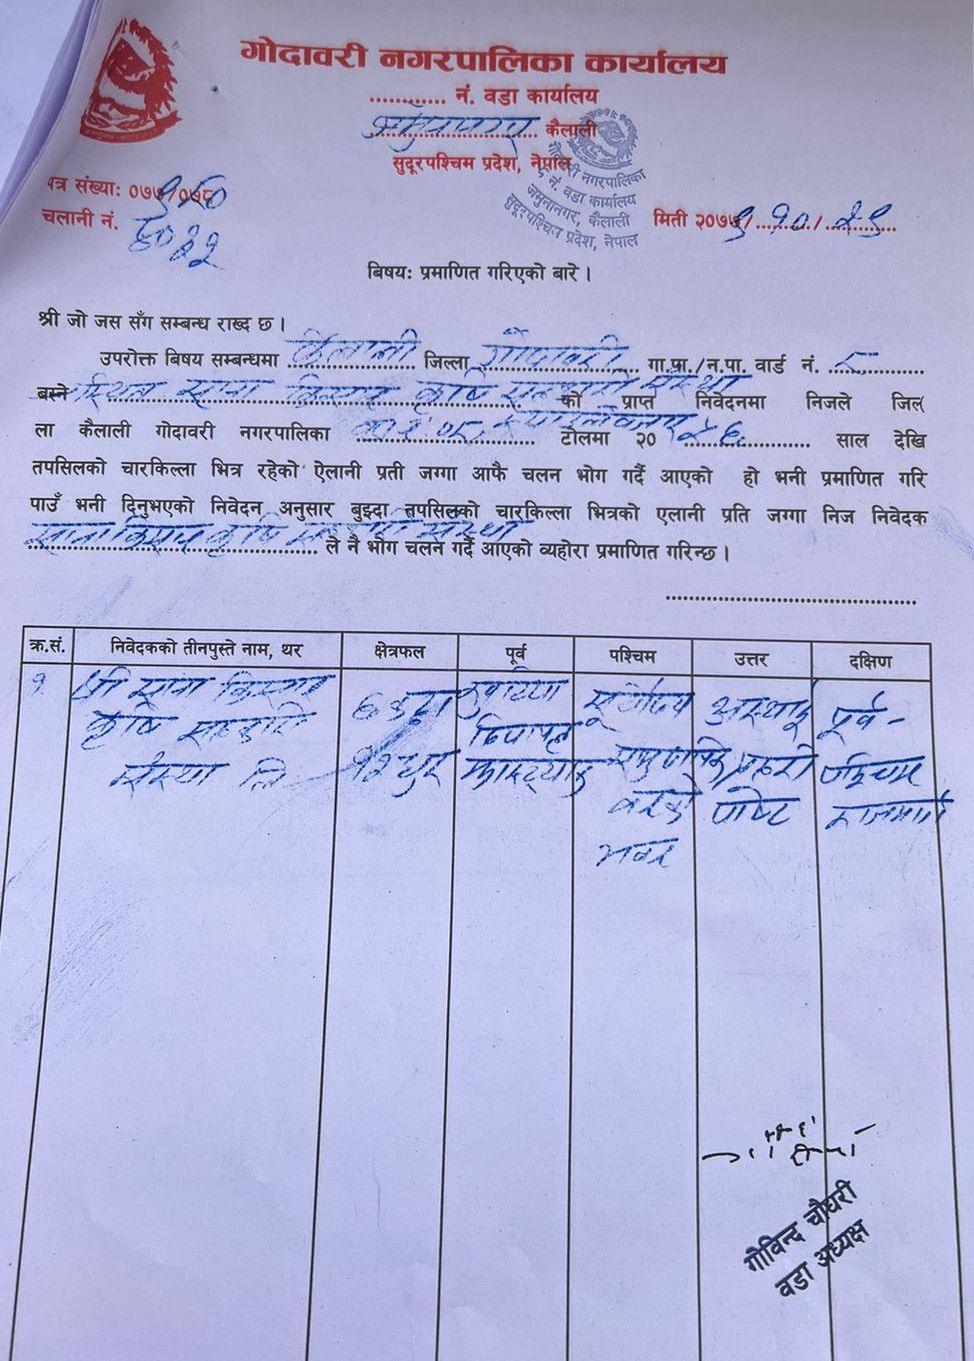 गोदावरी नगरपालिका कार्यालय
............ नं. वडा कार्यालय
कैलाली
सुदूरपश्चिम प्रदेश, नेपाल
गोदावरी नगरपालिका
नं. वडा कार्यालय
जमुनानगर, कैलाली
सुदूरपश्चिम प्रदेश, नेपाल
पत्र संख्या:
चलानी नं.
मिती २०७९।१०।२९
बिषय: प्रमाणित गरिएको बारे ।
श्री जो जस सँग सम्बन्ध राख्द छ ।
उपरोक्त बिषय सम्बन्धमा कैलाली जिल्ला गोदावरी गा.पा./न.पा. वार्ड नं. ८
बस्ने स्थित साना किसान कृषि सहकारी संस्था को प्राप्त निवेदनमा निजले जिल
ला कैलाली गोदावरी नगरपालिका टोलमा २० ५६ साल देखि
तपसिलको चारकिल्ला भित्र रहेको ऐलानी प्रती जग्गा आफै चलन भोग गर्दै आएको हो भनी प्रमाणित गरि
पाउँ भनी दिनुभएको निवेदन अनुसार बुझ्दा तपसिलको चारकिल्ला भित्रको एलानी प्रति जग्गा निज निवेदक
साना किसान कृषि सहकारी संस्था ले नै भोग चलन गर्दै आएको व्यहोरा प्रमाणित गरिन्छ ।
क्र.सं. निवेदकको तीनपुस्ते नाम, थर क्षेत्रफल पूर्व पश्चिम उत्तर दक्षिण
१. श्री साना किसान सूर्योदय अस्थाइ पूर्व-
कृषि सहकारी प्रहरी पश्चिम
संस्था लि १२ धुर पोष्ट राजमार्ग
भवन
गोविन्द चौधरी
वडा अध्यक्ष